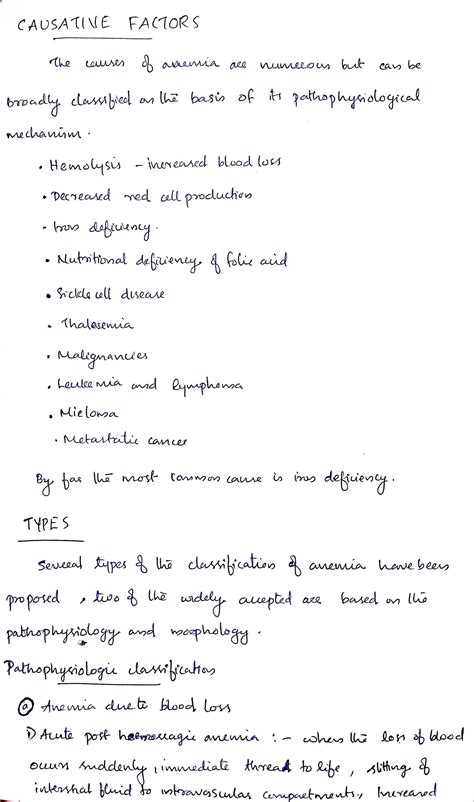 CAUSATIVE FACTORS
The causes of anemia are numerous but can be
broadly classified on the basis of its pathophysiological
mechanism.
• Hemolysis - increased blood loss
• Decreased red cell production
• Iron deficiency.
• Nutritional deficiency of folic acid
• Sickle cell disease
• Thalesemia
• Malignancies
• Leukemia and lymphoma
• Mieloma
• Metastatic cancer
By far the most common cause is iron deficiency.
TYPES
Several types of the classification of anemia have been
proposed , two of the widely accepted are based on the
pathophysiology and morphology.
Pathophysiologic classification
ⓐ Anemia due to blood loss
1) Acute post hemorragic anemia :- when the loss of blood
occurs suddenly, immediate thread to life, shifting of
intershal fluid to intravascular compartments, Increased